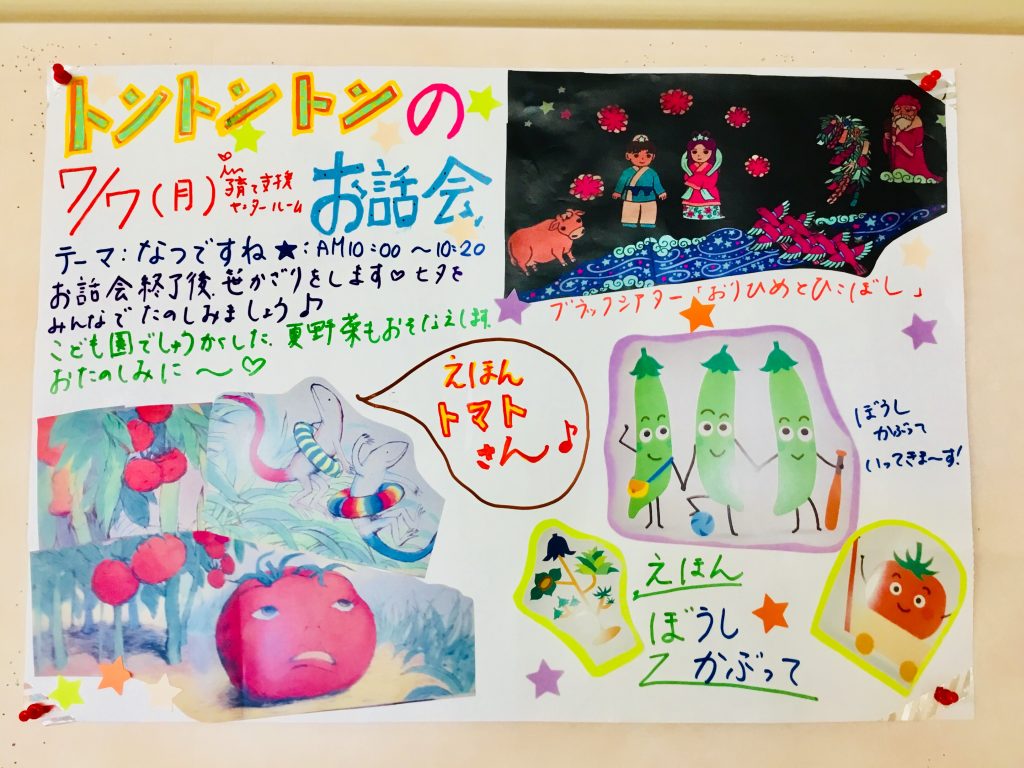 トントントンの
お話会
7/7(月)
in
子育て支援
センタールーム
テーマ:なつですね★:AM10:00〜10:20
お話会終了後、笹かざりをします♡七夕を
みんなでたのしみましょう♪
こども園でしゅうかくした、夏野菜もおそなえします。
おたのしみに〜♡
ブラックシアター「おりひめとひこぼし」
えほん
トマト
さん♪
ぼうし
かぶって
いってきま〜す!
えほん
ぼうし
かぶって